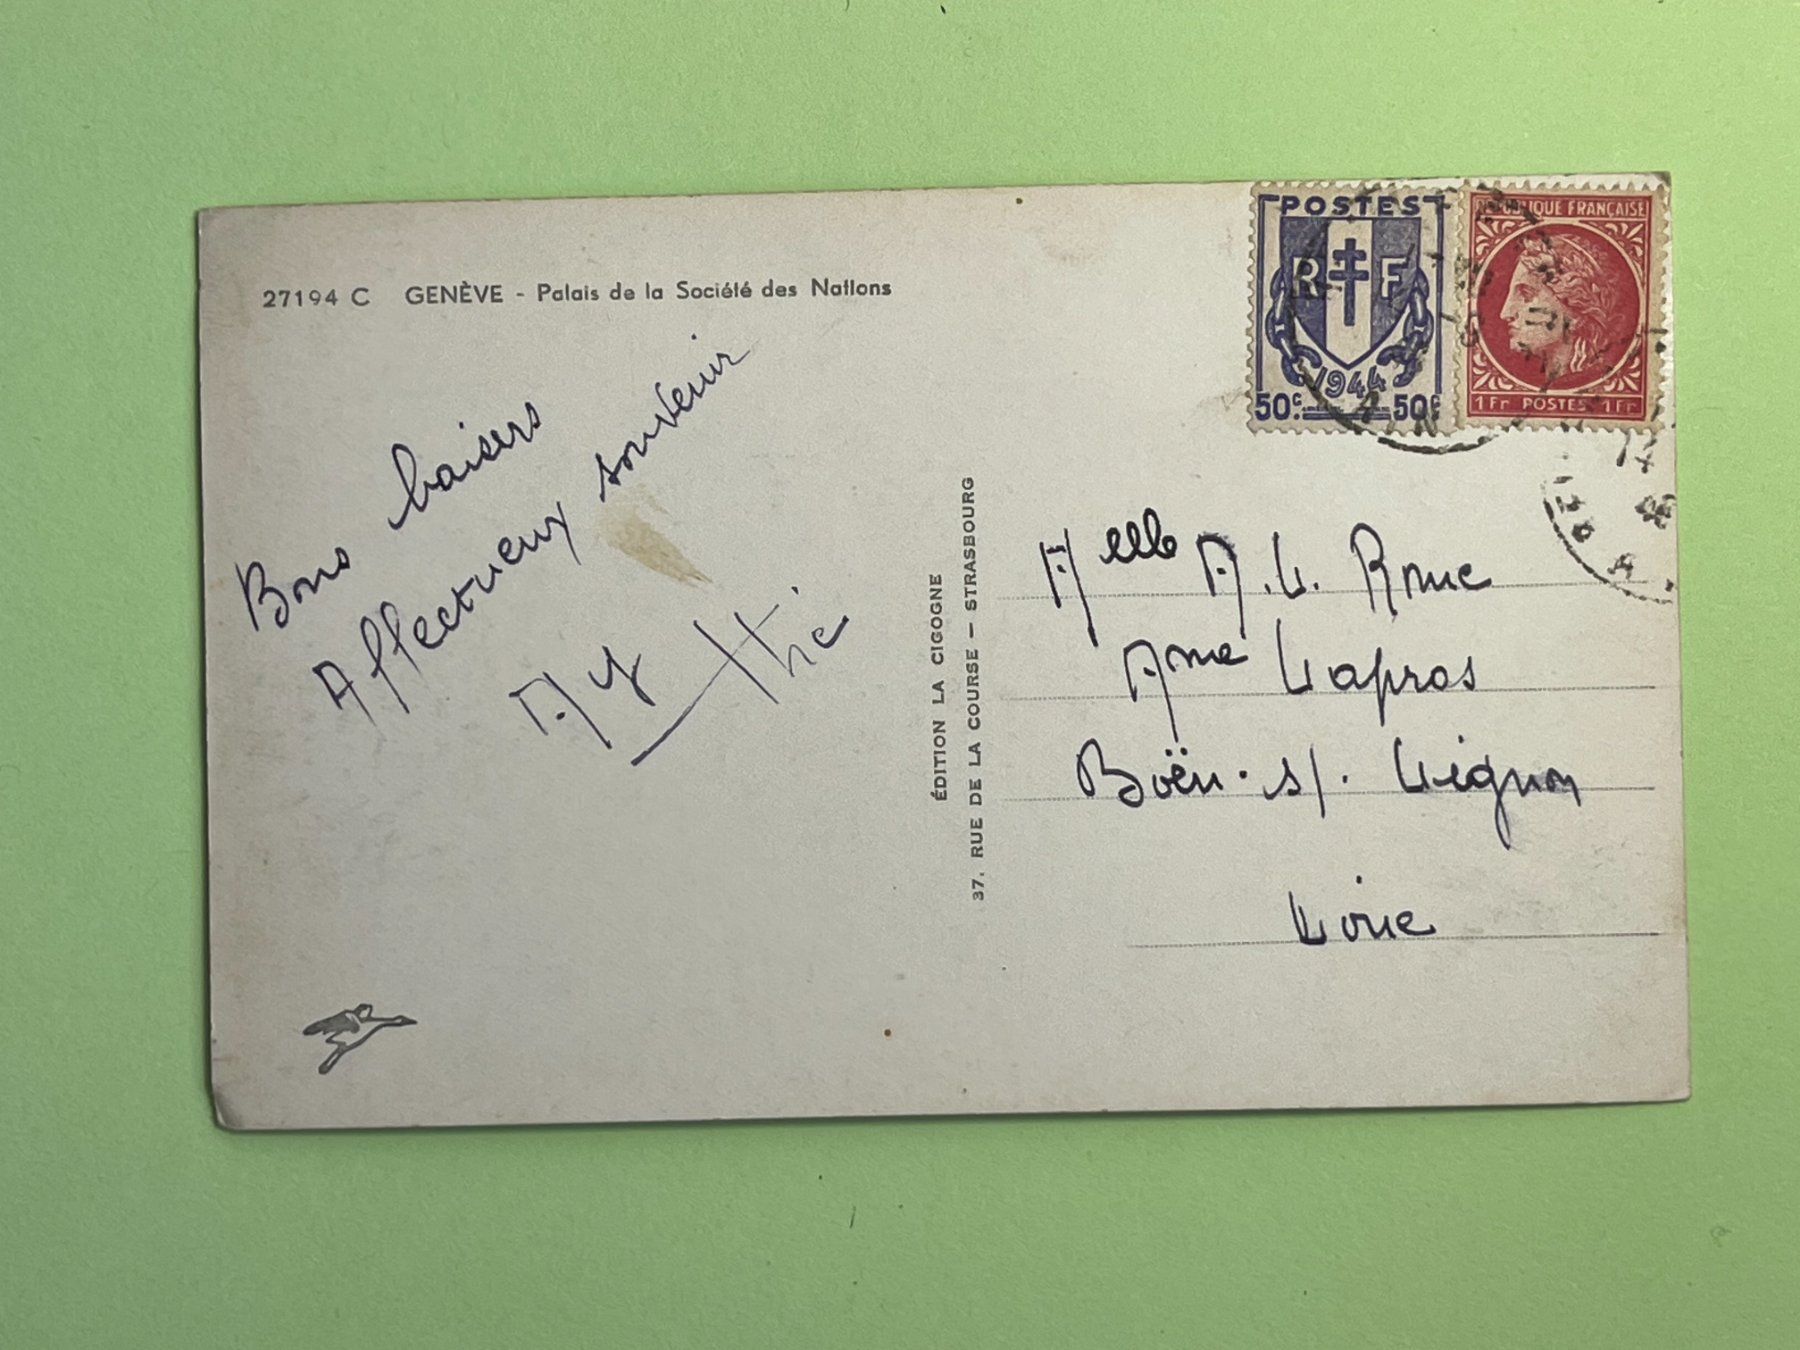 27194 C GENÈVE - Palais de la Société des Nations
Bons baisers
Affectueux souvenir
ÉDITION LA CIGOGNE
37, RUE DE LA COURSE - STRASBOURG
POSTES
RF
1944
50c. 50c
RÉPUBLIQUE FRANÇAISE
1Fr POSTES 1Fr
Melle M. L. Roue
Mme Lapras
Boën. s/. Lignon
Loire